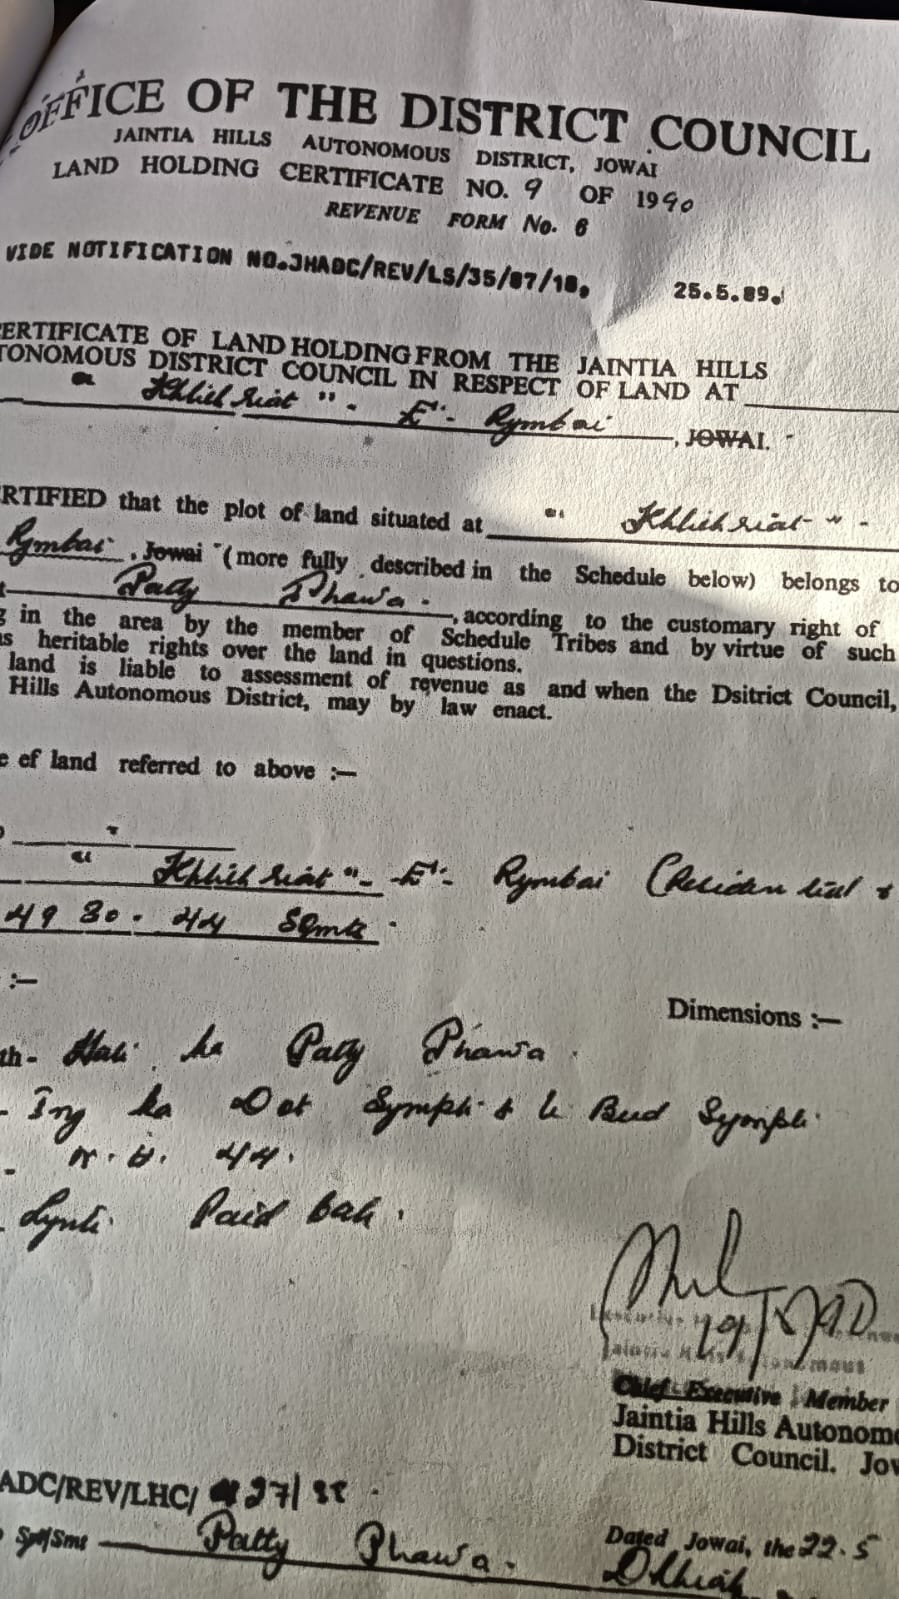 OFFICE OF THE DISTRICT COUNCIL
JAINTIA HILLS AUTONOMOUS DISTRICT, JOWAI
LAND HOLDING CERTIFICATE NO. 9 OF 1990
REVENUE FORM No. 6
VIDE NOTIFICATION NO.JHADC/REV/LS/35/87/18, 25.5.89.
ERTIFICATE OF LAND HOLDING FROM THE JAINTIA HILLS
TONOMOUS DISTRICT COUNCIL IN RESPECT OF LAND AT
" Khliehriat " - E - Rymbai , JOWAI.
RTIFIED that the plot of land situated at " Khliehriat " -
Rymbai , Jowai (more fully described in the Schedule below) belongs to
Patty Phawa - , according to the customary right of
g in the area by the member of Schedule Tribes and by virtue of such
as heritable rights over the land in questions.
land is liable to assessment of revenue as and when the Dsitrict Council,
Hills Autonomous District, may by law enact.
e ef land referred to above :—
" Khliehriat " - E - Rymbai (Residential &
4980.44 Sqmts
:—
Dimensions :—
th - Hali ka Patty Phawa .
- Ing ka Dot Sympli & Bud Sympli
- N. H. 44.
- Lynti Paid bah .
19/5/90
Chief Executive Member
Jaintia Hills Autonomo
District Council. Jow
ADC/REV/LHC/ 27/88 .
Sri/Smt — Patty Phawa -
Dated Jowai, the 22.5